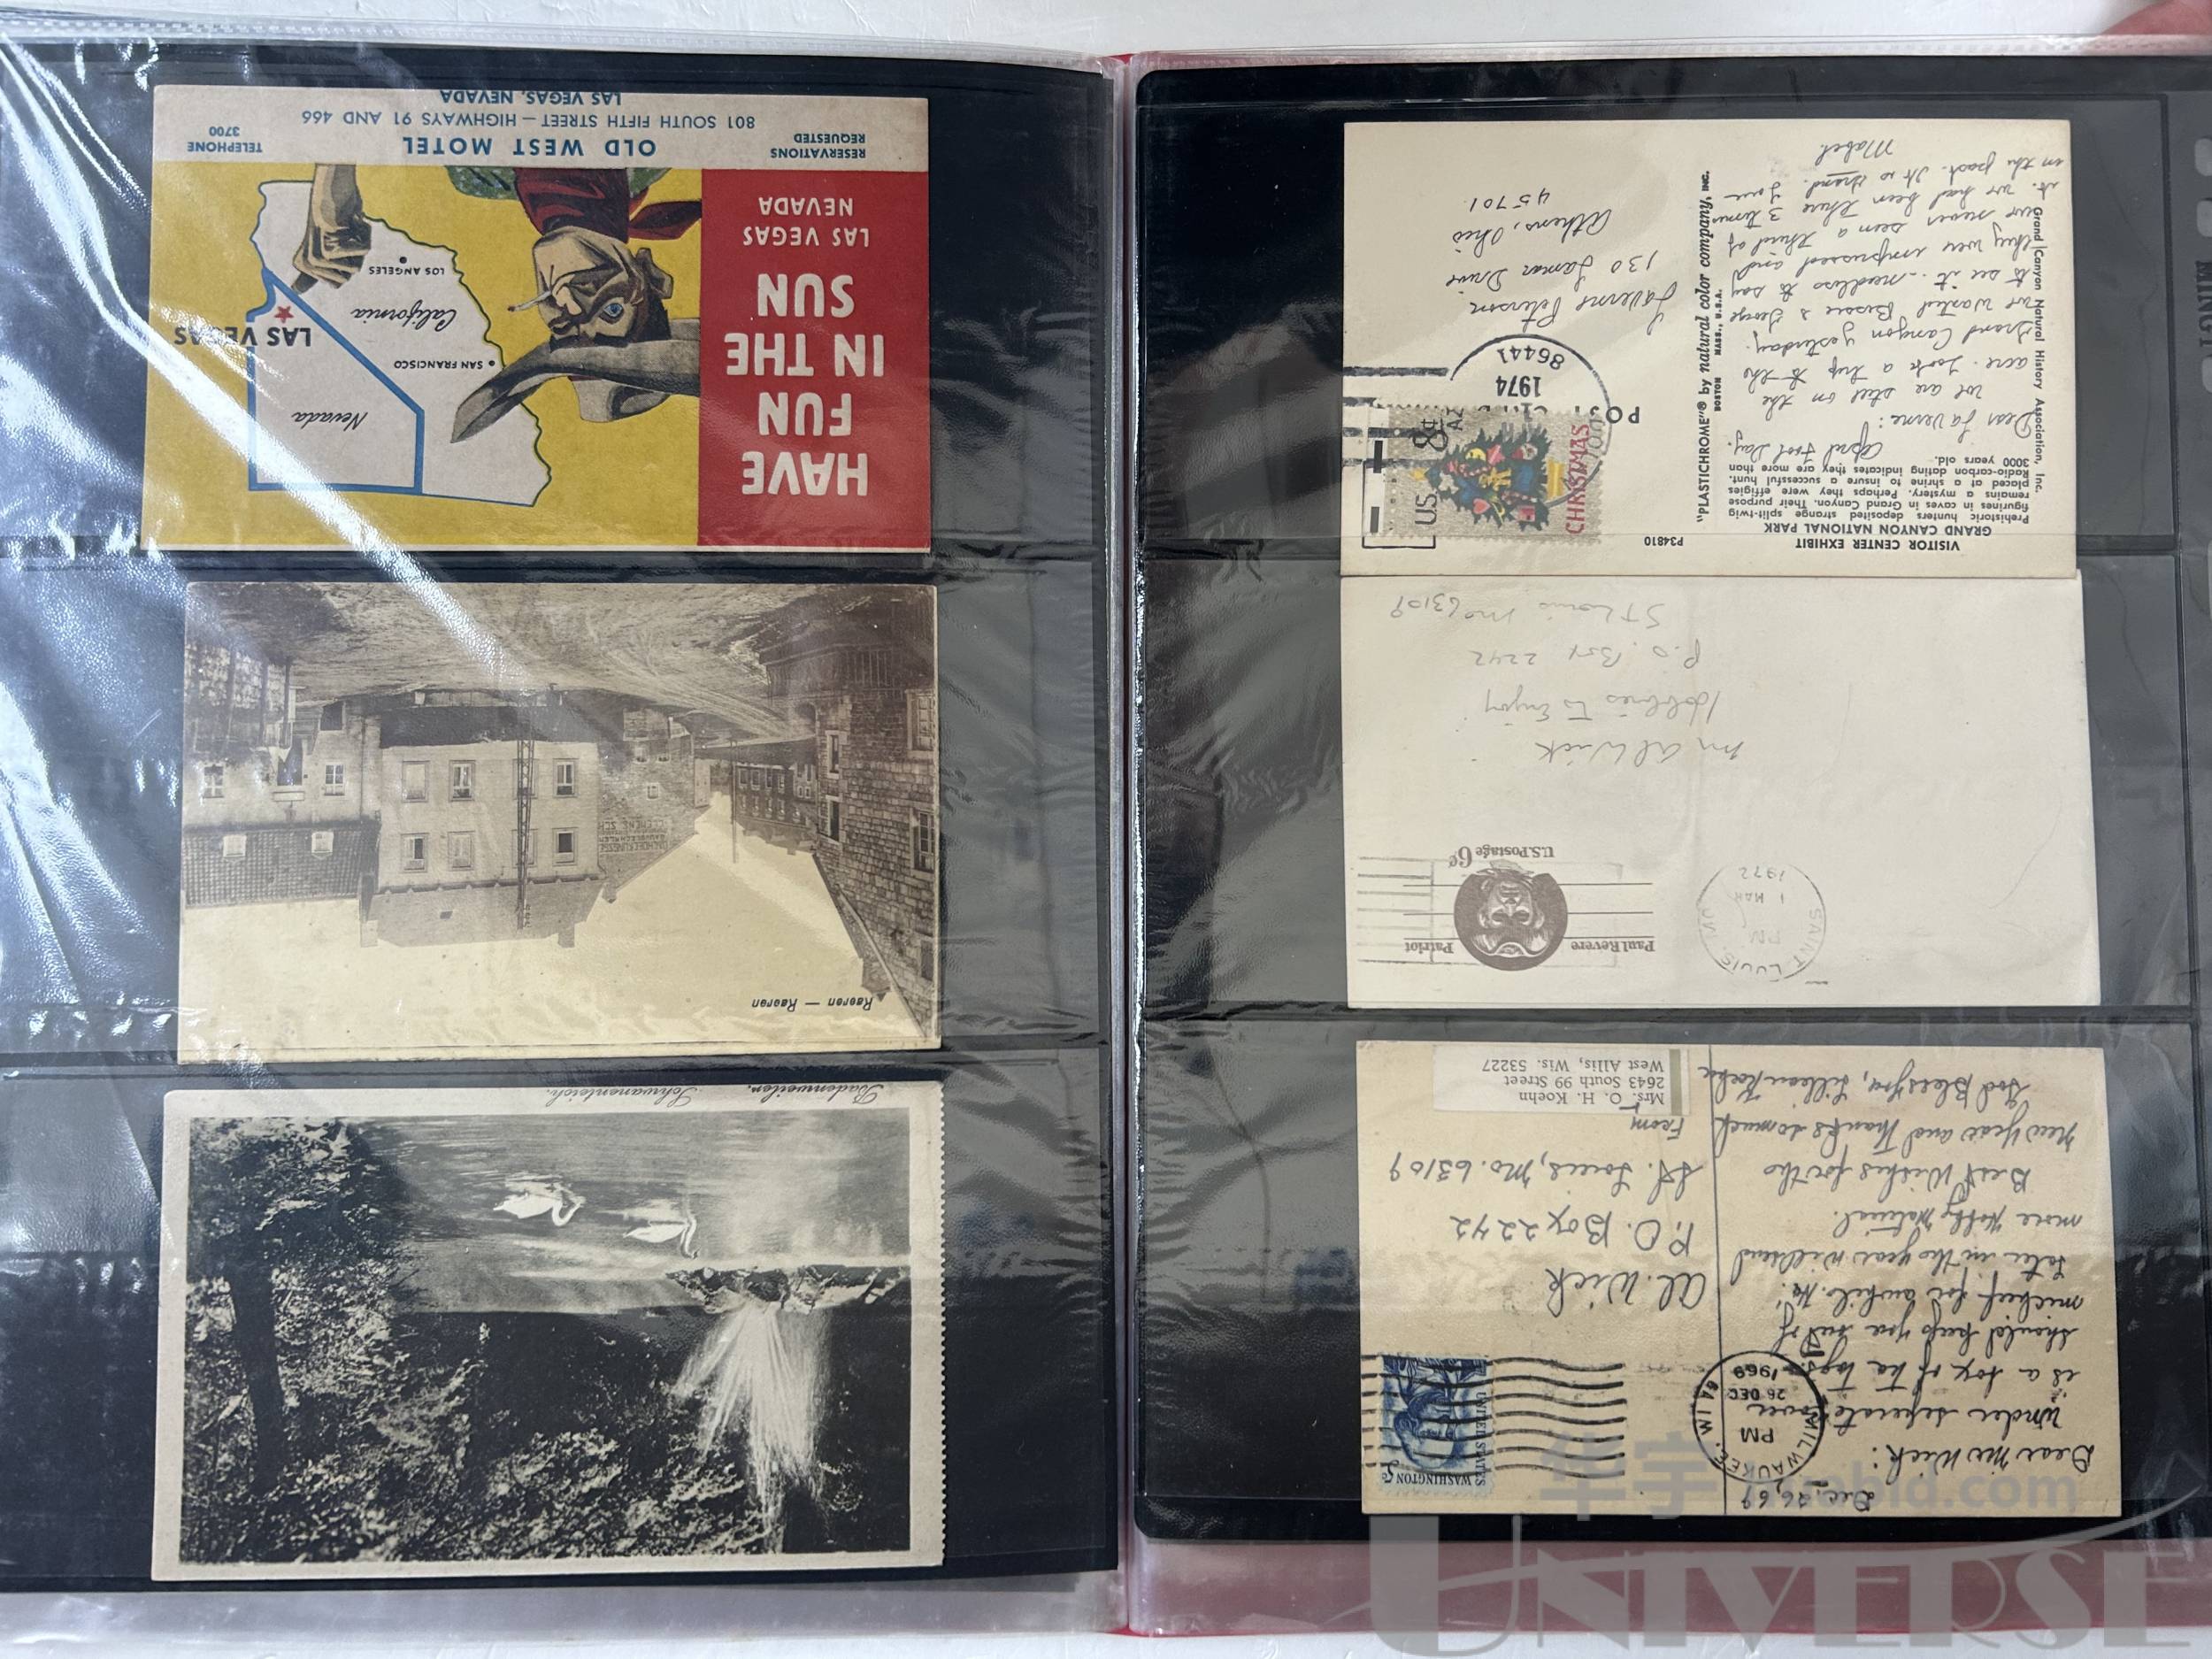 HAVE
FUN
IN THE
SUN
LAS VEGAS
NEVADA
Nevada
SAN FRANCISCO
California
LAS VEGAS
LOS ANGELES
RESERVATIONS
REQUESTED
OLD WEST MOTEL
TELEPHONE
3700
801 SOUTH FIFTH STREET — HIGHWAYS 91 AND 466
LAS VEGAS, NEVADA
Raeren — Raeren
Badenweiler.
Schwanenteich.
VISITOR CENTER EXHIBIT
GRAND CANYON NATIONAL PARK
Prehistoric hunters deposited strange split-twig
figurines in caves in Grand Canyon. Their purpose
remains a mystery. Perhaps they were effigies
placed at a shrine to insure a successful hunt.
Radio-carbon dating indicates they are more than
3000 years old.
P34810
Grand Canyon Natural History Association, Inc.
"PLASTICHROME"® by natural color company, INC.
BOSTON MASS., U.S.A.
April Fool Day.
Dear Laverne:
We are still on the
acre. Took a trip to the
Grand Canyon yesterday.
We wanted Bessie & George
to see it. needless to say
they were impressed and
we never seen a third of
it. We had been there 3 times
in the past. It is Grand.
Love
Mabel
CHRISTMAS
US 8¢
POST
AZ
1974
86441
Laverne Peterson
130 Lamar Drive
Athens, Ohio
45701
SAINT LOUIS, MO
PM
1 MAR
1972
Paul Revere
Patriot
U.S. Postage 6¢
Mr Al Wick
Hobbies To Enjoy
P.O. Box 2242
St Louis Mo 63109
Dec. 26, 69
Dear Mr Wick:
Under seperate cover
is a box of tax tags.
should keep you out of
mischief for awhile. Ha!
Later in the year will send
more Hobby Material.
Best Wishes for the
New Year and Thanks so much
God Bless You, Lillian Koehn
MILWAUKEE, WI
PM
26 DEC
1969
WASHINGTON 5¢
UNITED STATES
Al. Wick
P.O. Box 2242
St. Louis, Mo. 63109
From
Mrs. O. H. Koehn
2643 South 99 Street
West Allis, Wis. 53227
华宇
bid.com
UNIVERSE